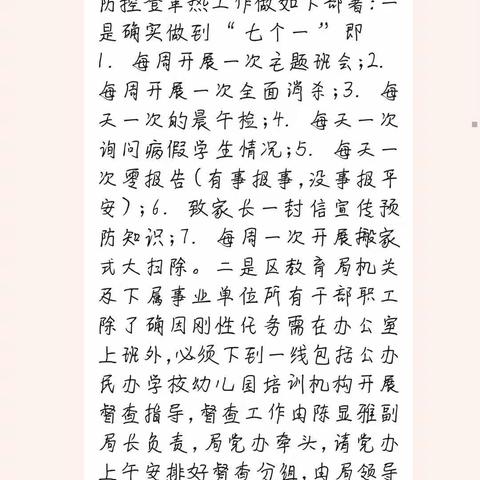 防控登革热工作做如下部署:一
是确实做到“七个一”即
1. 每周开展一次主题班会;2.
每周开展一次全面消杀;3. 每
天一次的晨午检;4. 每天一次
询问病假学生情况;5. 每天一
次零报告(有事报事,没事报平
安);6. 致家长一封信宣传预
防知识;7. 每周一次开展搬家
式大扫除。二是区教育局机关
及下属事业单位所有干部职工
除了确因刚性任务需在办公室
上班外,必须下到一线包括公办
民办学校幼儿园培训机构开展
督查指导,督查工作由陈显雅副
局长负责,局党办牵头,请党办
上午安排好督查分组,由局领导